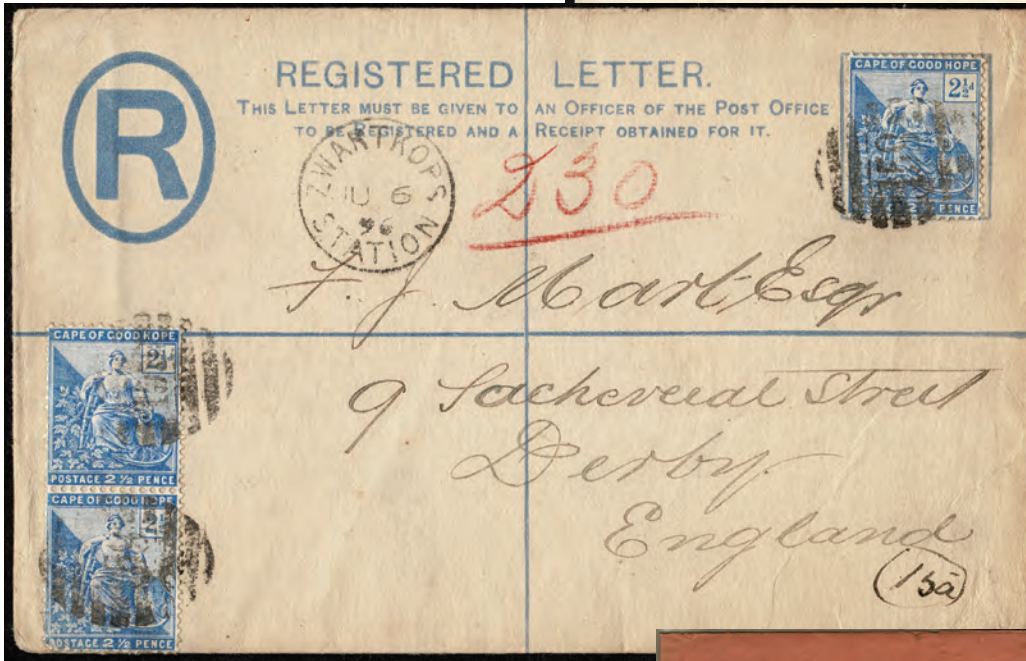 REGISTERED LETTER.
THIS LETTER MUST BE GIVEN TO AN OFFICER OF THE POST OFFICE
TO BE REGISTERED AND A RECEIPT OBTAINED FOR IT.
R
CAPE OF GOOD HOPE
2½d
PENCE
ZWARTKOPS
JU 6
96
STATION
230
F. J. Mart Esqr
9 Sacheveral Street
Derby
England
15a
CAPE OF GOOD HOPE
POSTAGE 2½ PENCE
CAPE OF GOOD HOPE
POSTAGE 2½ PENCE